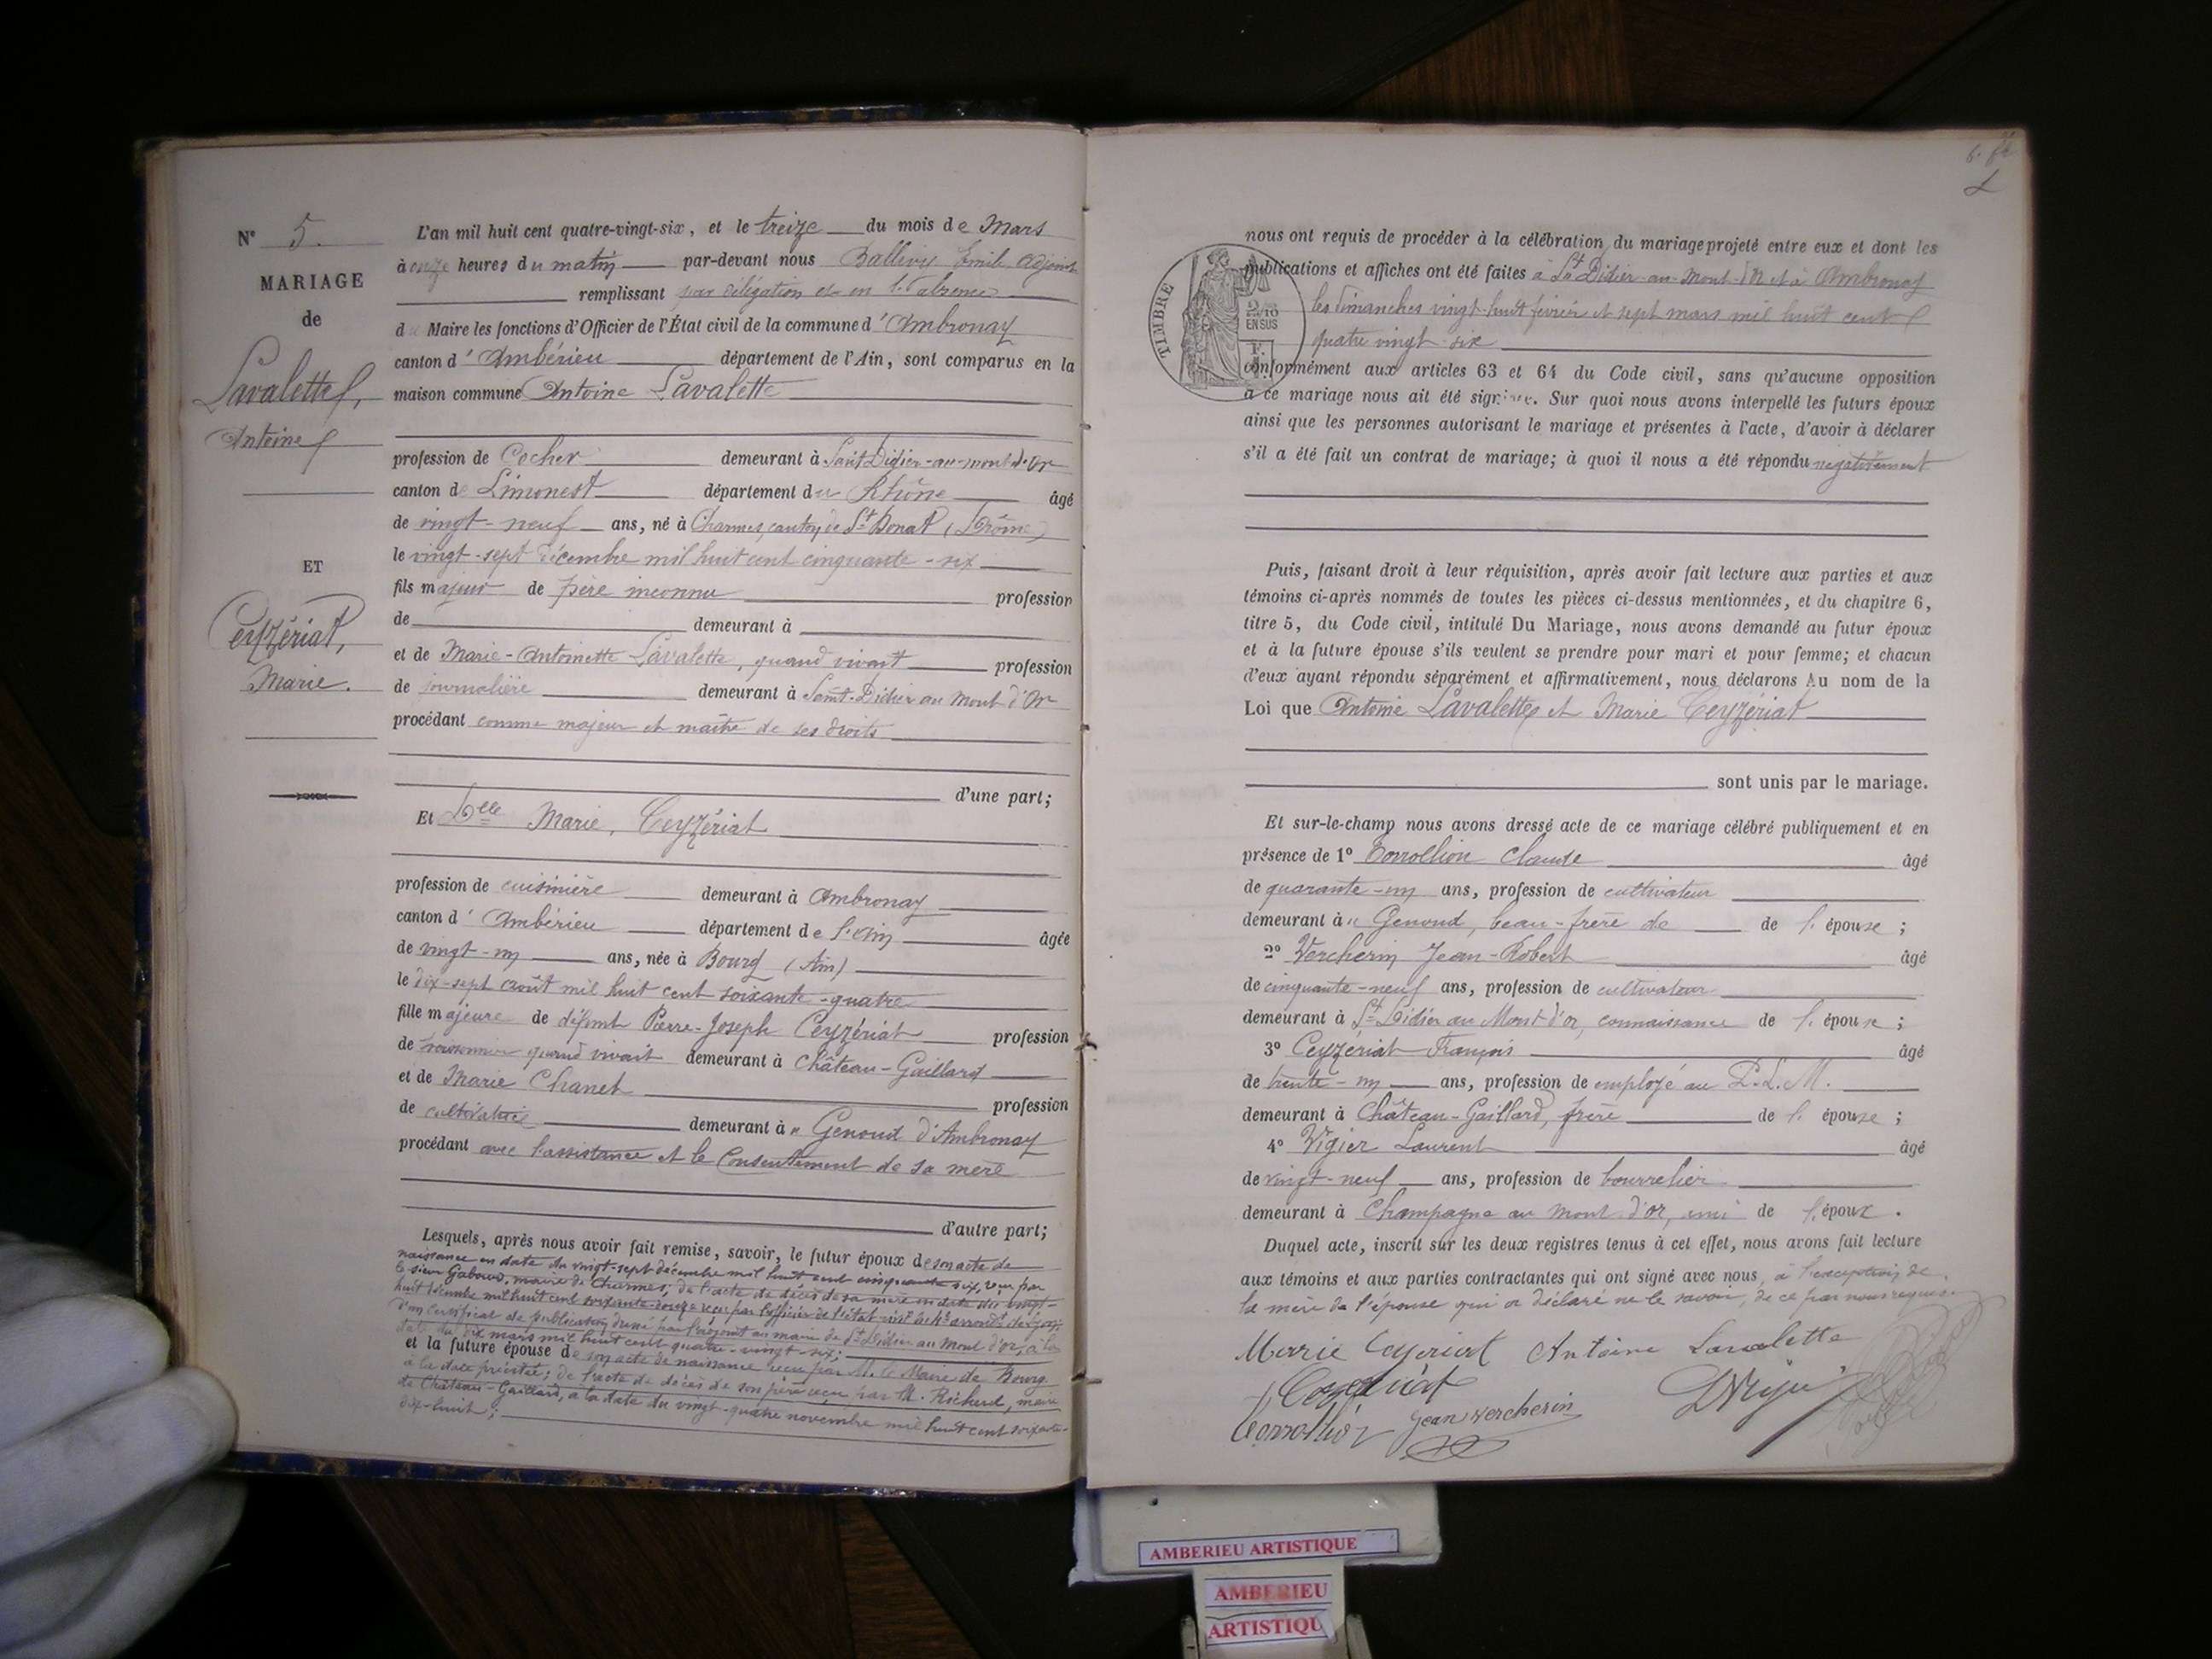 N° 5.
MARIAGE
de
Lavalette,
Antoine
ET
Ceyzériat,
Marie.
L'an mil huit cent quatre-vingt-six, et le treize du mois de Mars
à onze heures du matin par-devant nous Ballivy Emile adjoint
remplissant par délégation et en l'absence
du Maire les fonctions d'Officier de l'État civil de la commune d'Ambronay
canton d'Ambérieu département de l'Ain, sont comparus en la
maison commune Antoine Lavalette
profession de Cocher demeurant à Saint Didier-au-mont-d'Or
canton de Limonest département du Rhône âgé
de vingt-neuf ans, né à Charmes, canton de St Donat (Drôme)
le vingt-sept décembre mil huit cent cinquante-six
fils majeur de père inconnu profession
de demeurant à
et de Marie-Antoinette Lavalette, quand vivait profession
de journalière demeurant à Saint-Didier au Mont d'Or
procédant comme majeur et maître de ses droits
d'une part;
Et Delle Marie, Ceyzériat
profession de cuisinière demeurant à Ambronay
canton d'Ambérieu département de l'Ain âgée
de vingt-un ans, née à Bourg (Ain)
le dix-sept août mil huit cent soixante-quatre
fille majeure de défunt Pierre-Joseph Ceyzériat profession
de quand vivait demeurant à Château-Gaillard
et de Marie Chanel profession
de cultivatrice demeurant à Genoud d'Ambronay
procédant avec l'assistance et le Consentement de sa mère
d'autre part;
Lesquels, après nous avoir fait remise, savoir, le futur époux de son acte de
naissance en date du vingt-sept décembre mil huit cent cinquante six, reçu par
le sieur Gabour, maire de Charmes; de l'acte de décès de sa mère en date du vingt-
huit décembre mil huit cent soixante-douze reçu par l'officier de l'état civil du arrondt de Lyon;
d'un certificat de publication donné par l'adjoint au maire de St Didier au Mont d'or, à la
date du dix mars mil huit cent quatre-vingt-six;
et la future épouse de son acte de naissance reçu par M. le Maire de Bourg
à la date précitée; de l'acte de décès de son père reçu par M. Richerd, maire
de Château-Gaillard, à la date du vingt-quatre novembre mil huit cent soixante-
dix-huit;
nous ont requis de procéder à la célébration du mariage projeté entre eux et dont les
publications et affiches ont été faites à St Didier-au-Mont-d'Or et à Ambronay
les dimanches vingt-huit février et sept mars mil huit cent
quatre vingt-six
TIMBRE
2/10
EN SUS
conformément aux articles 63 et 64 du Code civil, sans qu'aucune opposition
à ce mariage nous ait été signifiée. Sur quoi nous avons interpellé les futurs époux
ainsi que les personnes autorisant le mariage et présentes à l'acte, d'avoir à déclarer
s'il a été fait un contrat de mariage; à quoi il nous a été répondu négativement
Puis, faisant droit à leur réquisition, après avoir fait lecture aux parties et aux
témoins ci-après nommés de toutes les pièces ci-dessus mentionnées, et du chapitre 6,
titre 5, du Code civil, intitulé Du Mariage, nous avons demandé au futur époux
et à la future épouse s'ils veulent se prendre pour mari et pour femme; et chacun
d'eux ayant répondu séparément et affirmativement, nous déclarons Au nom de la
Loi que Antoine Lavalette et Marie Ceyzériat
sont unis par le mariage.
Et sur-le-champ nous avons dressé acte de ce mariage célébré publiquement et en
présence de 1° Corrollion Claude âgé
de quarante-un ans, profession de cultivateur
demeurant à Genoud, beau-frère de de l'épouse;
2° Vercherin Jean-Robert âgé
de cinquante-neuf ans, profession de cultivateur
demeurant à St Didier au Mont d'or, connaissance de l'épouse;
3° Ceyzériat François âgé
de trente-un ans, profession de employé au P.L.M.
demeurant à Château-Gaillard, frère de l'épouse;
4° Vigier Laurent âgé
de vingt-neuf ans, profession de bourrelier
demeurant à Champagne au Mont d'or, ami de l'époux.
Duquel acte, inscrit sur les deux registres tenus à cet effet, nous avons fait lecture
aux témoins et aux parties contractantes qui ont signé avec nous, à l'exception de
la mère de l'épouse qui a déclaré ne le savoir, de ce par nous requise.
Marie Ceyzeriat Antoine Lavalette
Ceyzeriat
Corrollion Jean Vercherin
AMBERIEU ARTISTIQUE
AMBERIEU
ARTISTIQU